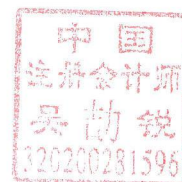 中国
注册会计师
320200281596